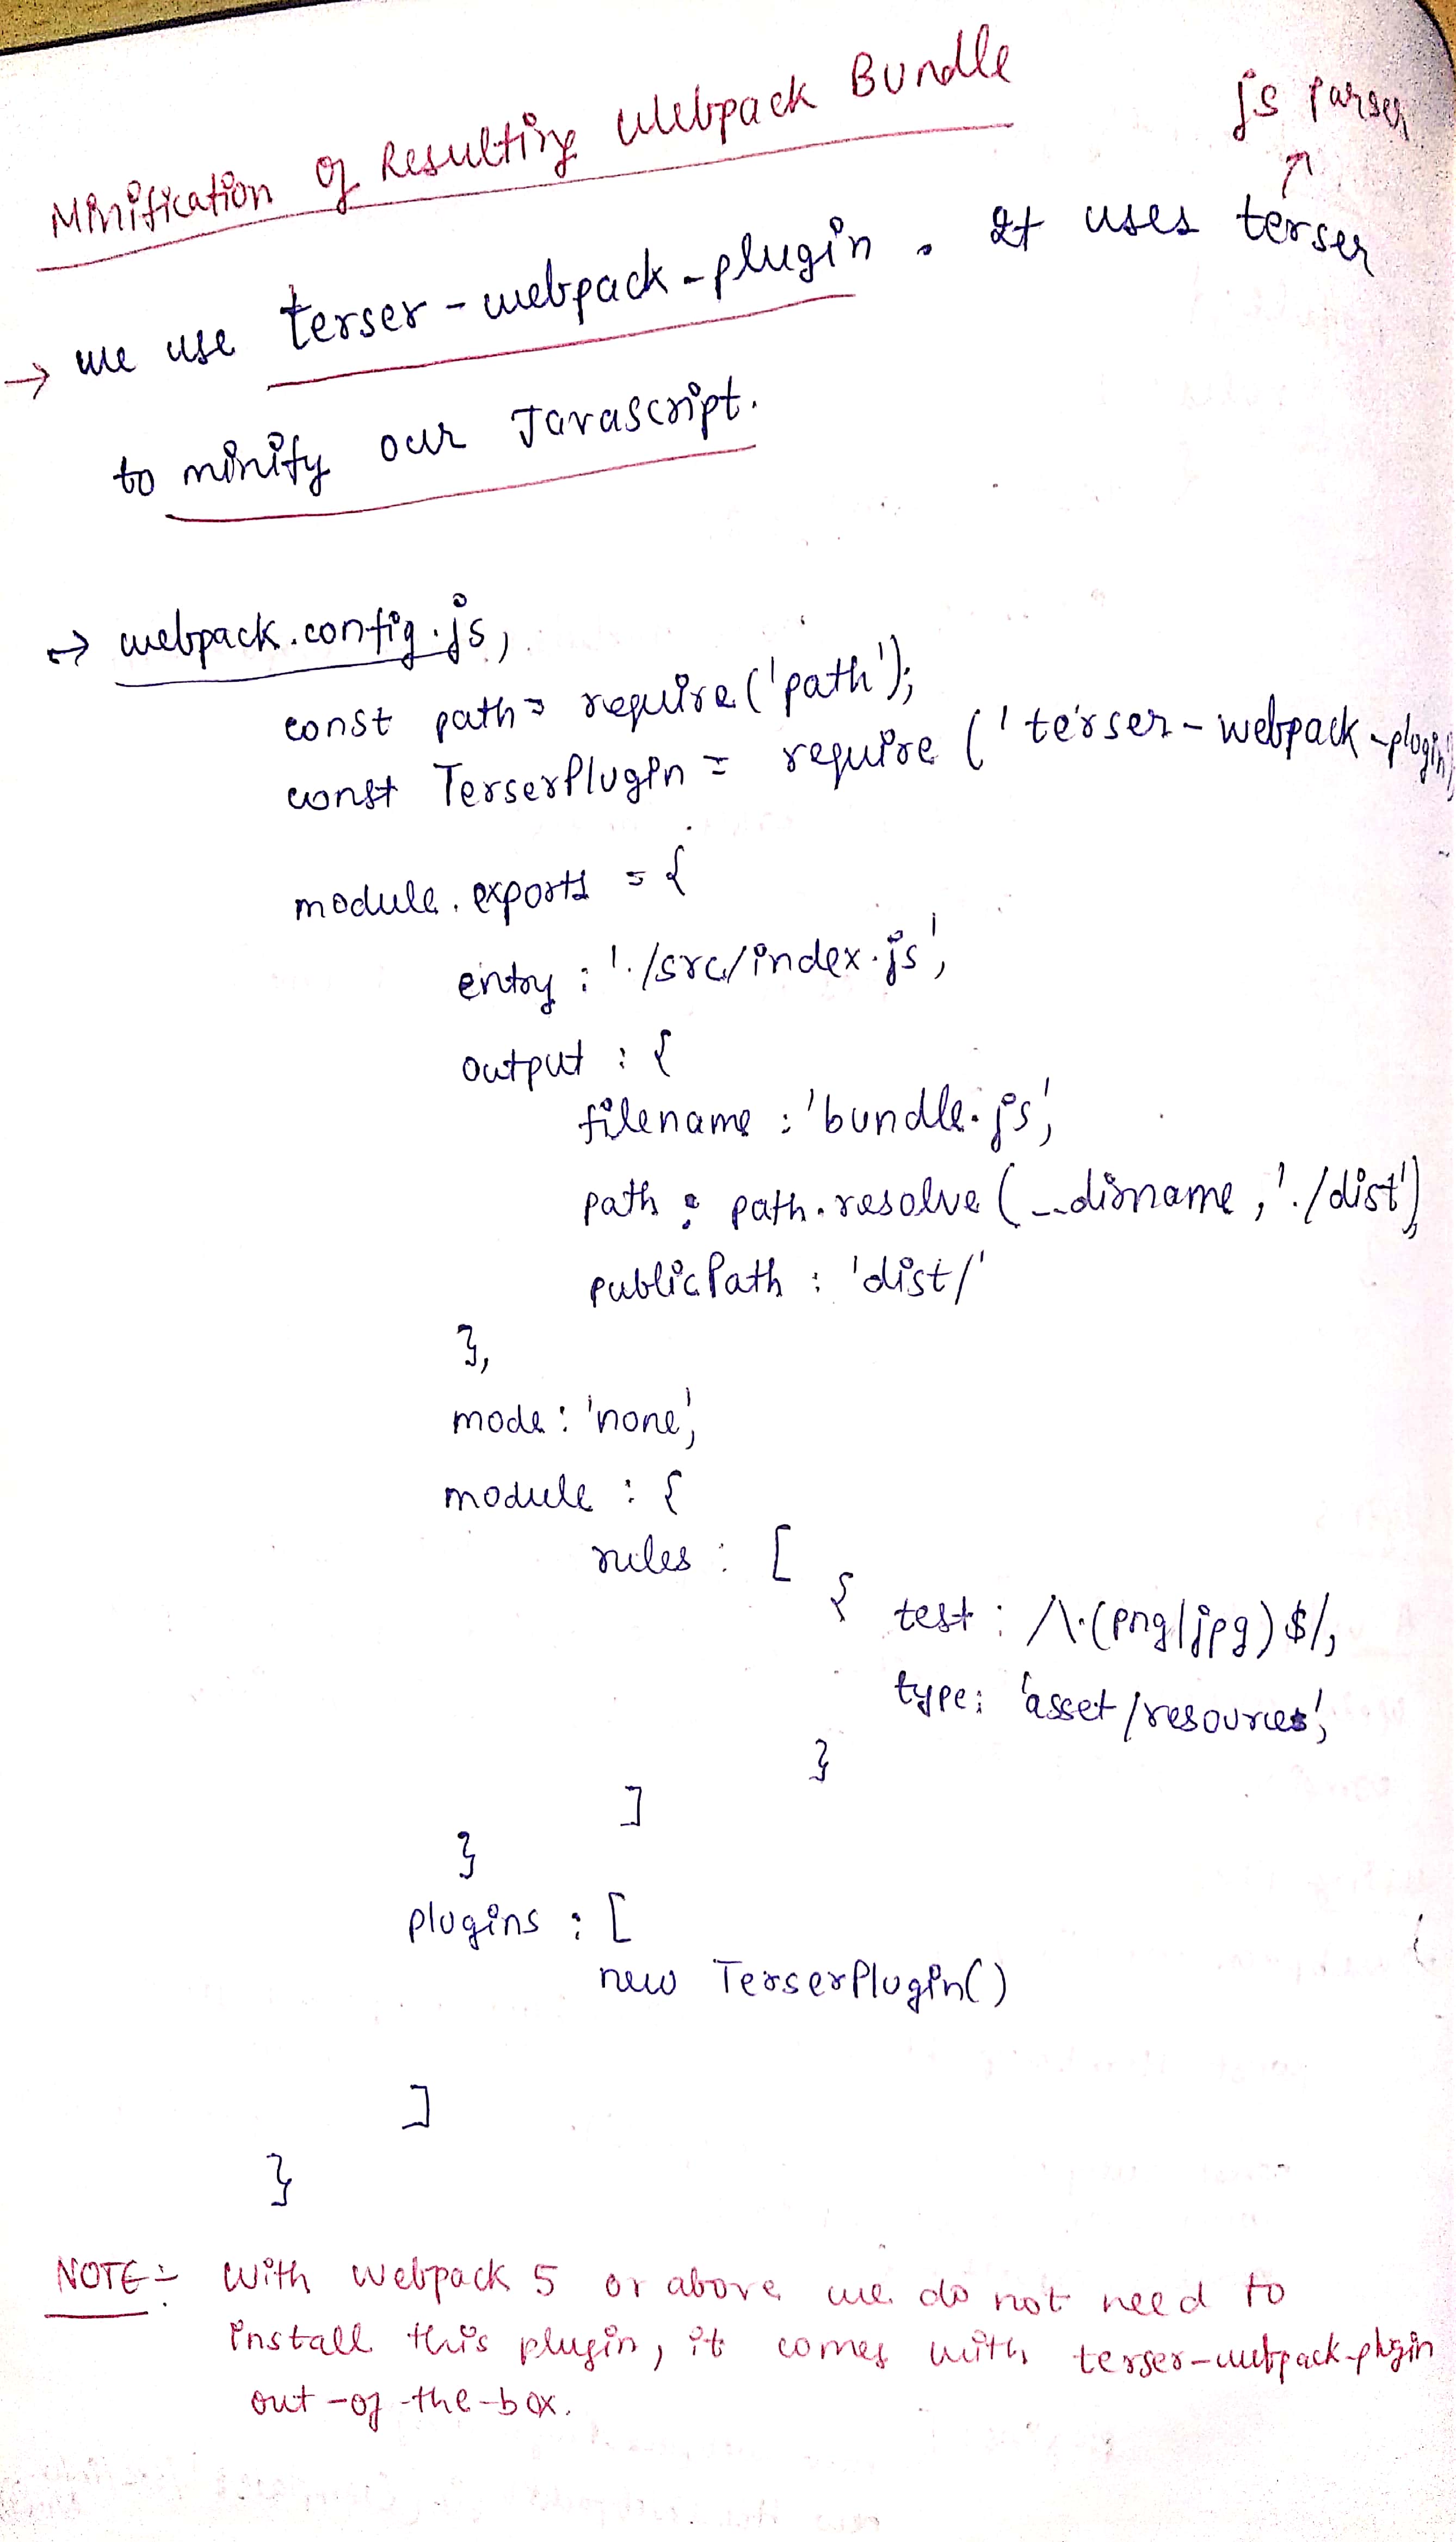 Minification of Resulting Webpack Bundle
js parser
↑
→ we use terser-webpack-plugin. It uses terser
to minify our Javascript.
→ webpack.config.js,
const path = require('path');
const TerserPlugin = require('terser-webpack-plugin')
module.exports = {
entry : './src/index.js',
output : {
filename : 'bundle.js',
path : path.resolve(__dirname, './dist'),
publicPath : 'dist/'
},
mode : 'none',
module : {
rules : [
{ test : /\.(png|jpg)$/,
type : 'asset/resources',
}
]
}
plugins : [
new TerserPlugin()
]
}
NOTE:- with webpack 5 or above we do not need to
install this plugin, it comes with terser-webpack-plugin
out-of-the-box.